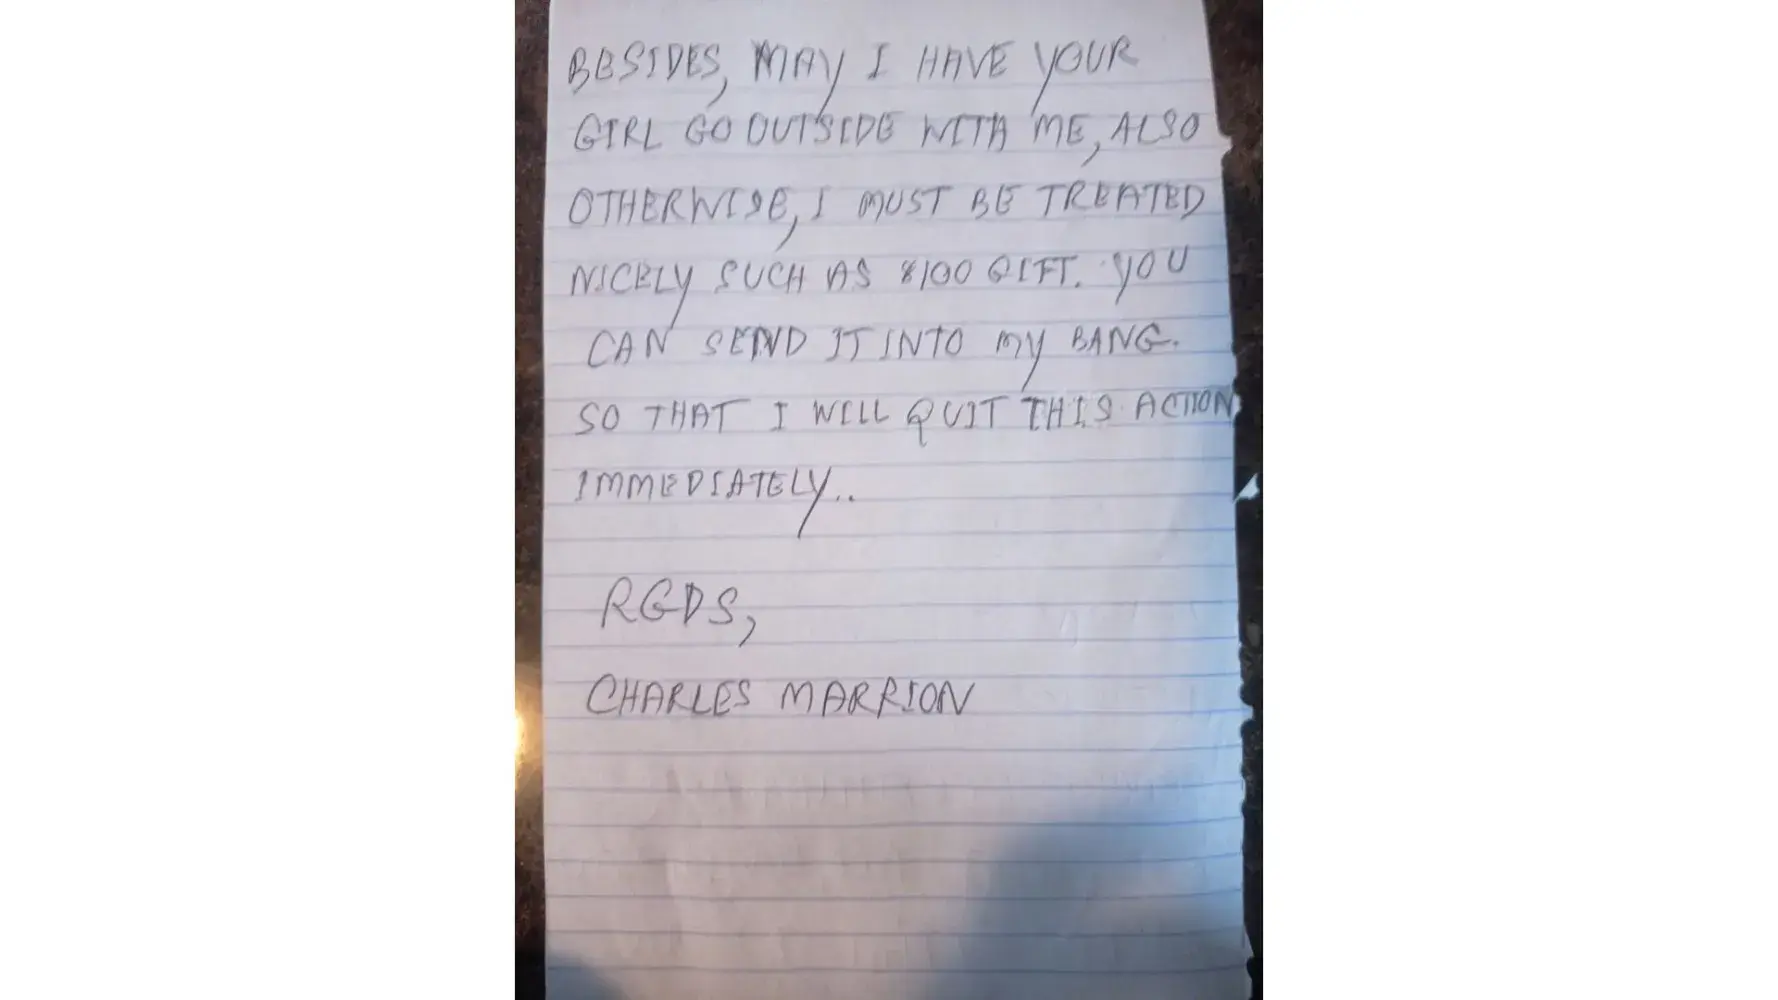 BESIDES, MAY I HAVE YOUR
GIRL GO OUTSIDE WITH ME, ALSO
OTHERWISE, I MUST BE TREATED
NICELY SUCH AS $100 GIFT. YOU
CAN SEND IT INTO MY BANG.
SO THAT I WILL QUIT THIS ACTION
IMMEDIATELY..
RGDS,
CHARLES MARRION